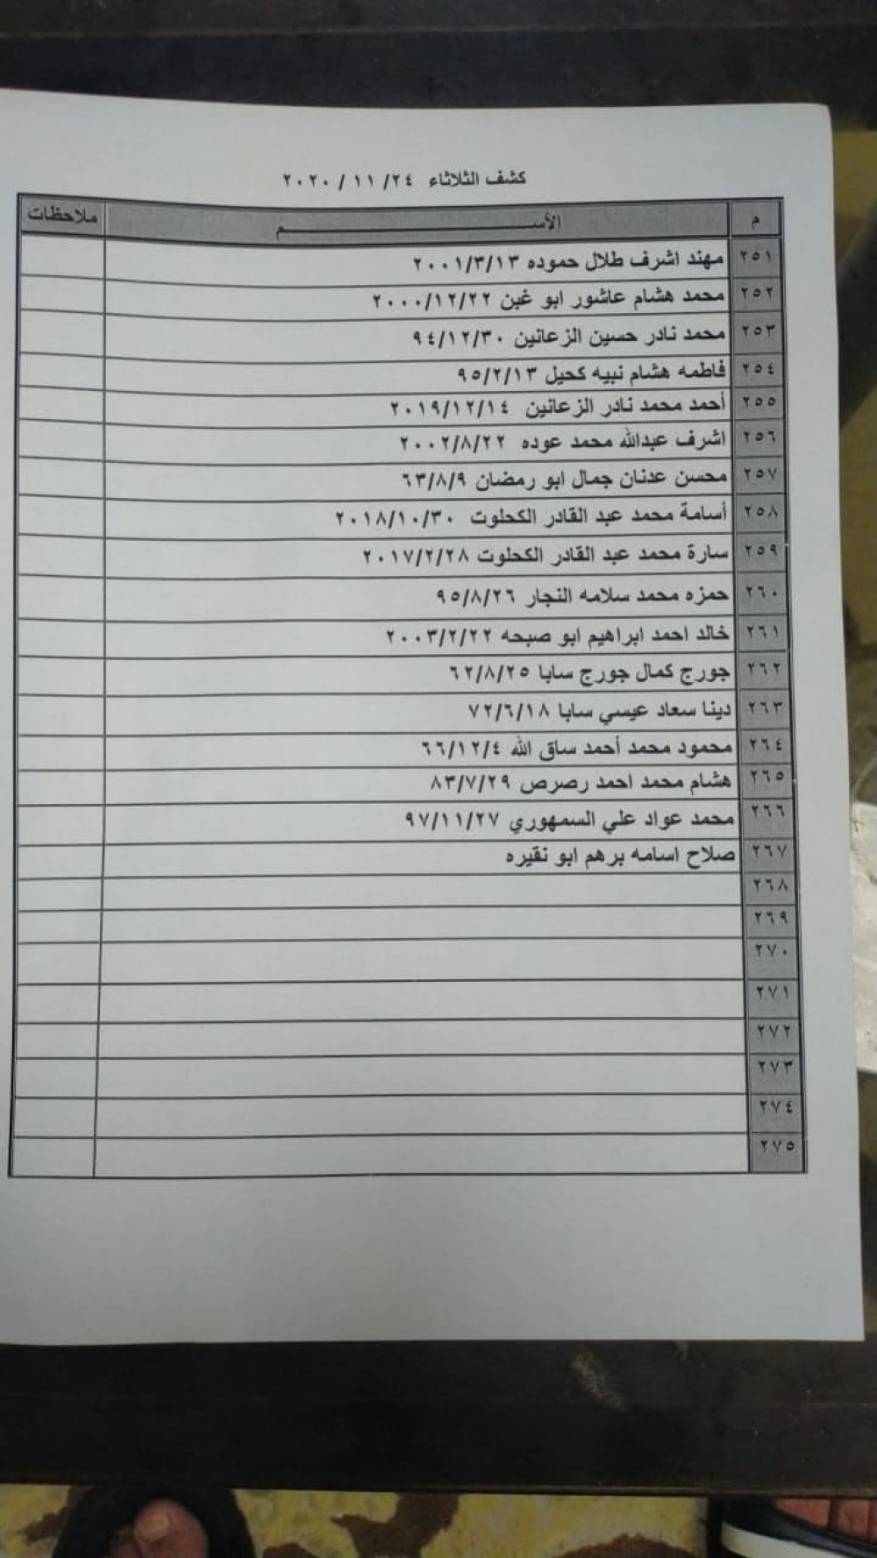 كشف الثلاثاء ٢٤/ ١١ / ٢٠٢٠
م الأســـــــم ملاحظات
٢٥١ مهند اشرف طلال حموده ٢٠٠١/٣/١٣
٢٥٢ محمد هشام عاشور ابو غبن ٢٠٠٠/١٢/٢٢
٢٥٣ محمد نادر حسين الزعانين ٩٤/١٢/٣٠
٢٥٤ فاطمه هشام نبيه كحيل ٩٥/٢/١٣
٢٥٥ أحمد محمد نادر الزعانين ٢٠١٩/١٢/١٤
٢٥٦ اشرف عبدالله محمد عوده ٢٠٠٢/٨/٢٢
٢٥٧ محسن عدنان جمال ابو رمضان ٦٣/٨/٩
٢٥٨ أسامة محمد عبد القادر الكحلوت ٢٠١٨/١٠/٣٠
٢٥٩ سارة محمد عبد القادر الكحلوت ٢٠١٧/٢/٢٨
٢٦٠ حمزه محمد سلامه النجار ٩٥/٨/٢٦
٢٦١ خالد احمد ابراهيم ابو صبحه ٢٠٠٣/٢/٢٢
٢٦٢ جورج كمال جورج سابا ٦٢/٨/٢٥
٢٦٣ دينا سعاد عيسي سابا ٧٢/٦/١٨
٢٦٤ محمود محمد أحمد ساق الله ٦٦/١٢/٤
٢٦٥ هشام محمد احمد رصرص ٨٣/٧/٢٩
٢٦٦ محمد عواد علي السمهوري ٩٧/١١/٢٧
٢٦٧ صلاح اسامه برهم ابو نقيره
٢٦٨
٢٦٩
٢٧٠
٢٧١
٢٧٢
٢٧٣
٢٧٤
٢٧٥